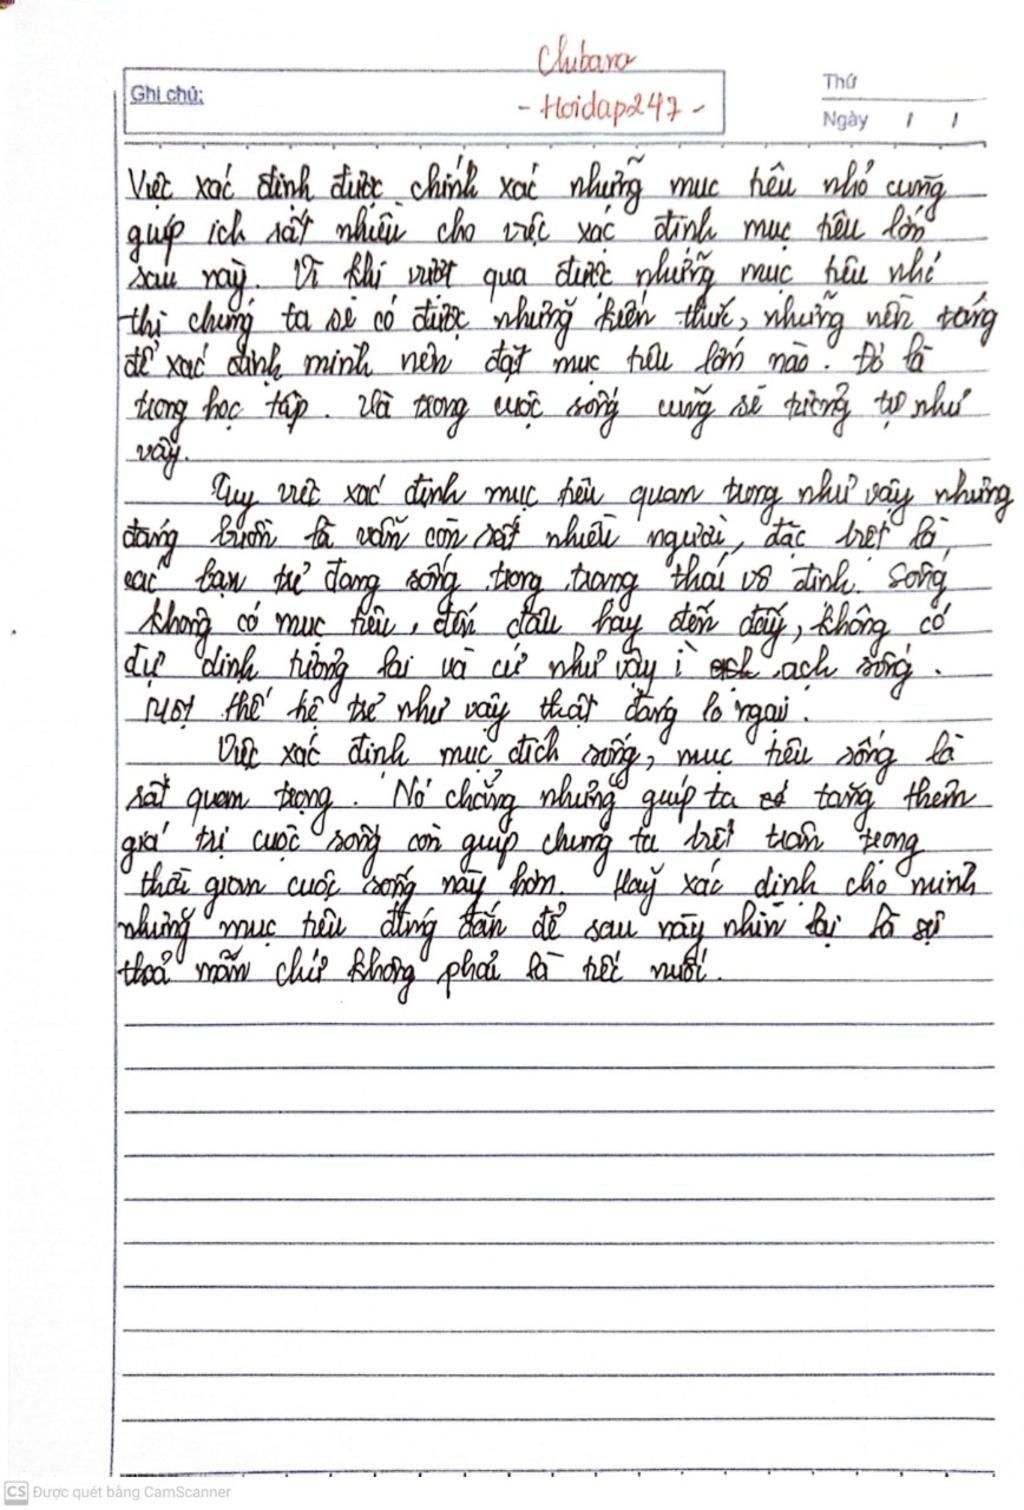 Chibaro
Ghi chú:
- Hoidap247 -
Thứ
Ngày / /
Việc xác định được chính xác những mục tiêu nhỏ cũng
giúp ích rất nhiều cho việc xác định mục tiêu lớn
sau này. Vì khi vượt qua được những mục tiêu nhỏ
thì chúng ta sẽ có được những kiến thức, những nền tảng
để xác định mình nên đặt mục tiêu lớn nào. Đó là
trong học tập. Và trong cuộc sống cũng sẽ tương tự như
vậy.
Tuy việc xác định mục tiêu quan trọng như vậy nhưng
đáng buồn là vẫn còn rất nhiều người, đặc biệt là,
các bạn trẻ đang sống trong trạng thái vô định. Sống
không có mục tiêu, đến đâu hay đến đấy, không có
dự định tương lai và cứ như vậy ì ạch sống.
Một thế hệ trẻ như vậy thật đáng lo ngại.
Việc xác định mục đích sống, mục tiêu sống là
rất quan trọng. Nó chẳng những giúp ta có tăng thêm
giá trị cuộc sống còn giúp chúng ta biết trân trọng
thời gian cuộc sống này hơn. Hãy xác định cho mình
những mục tiêu đúng đắn để sau này nhìn lại là sự
thoả mãn chứ không phải là tiếc nuối.
CS Được quét bằng CamScanner